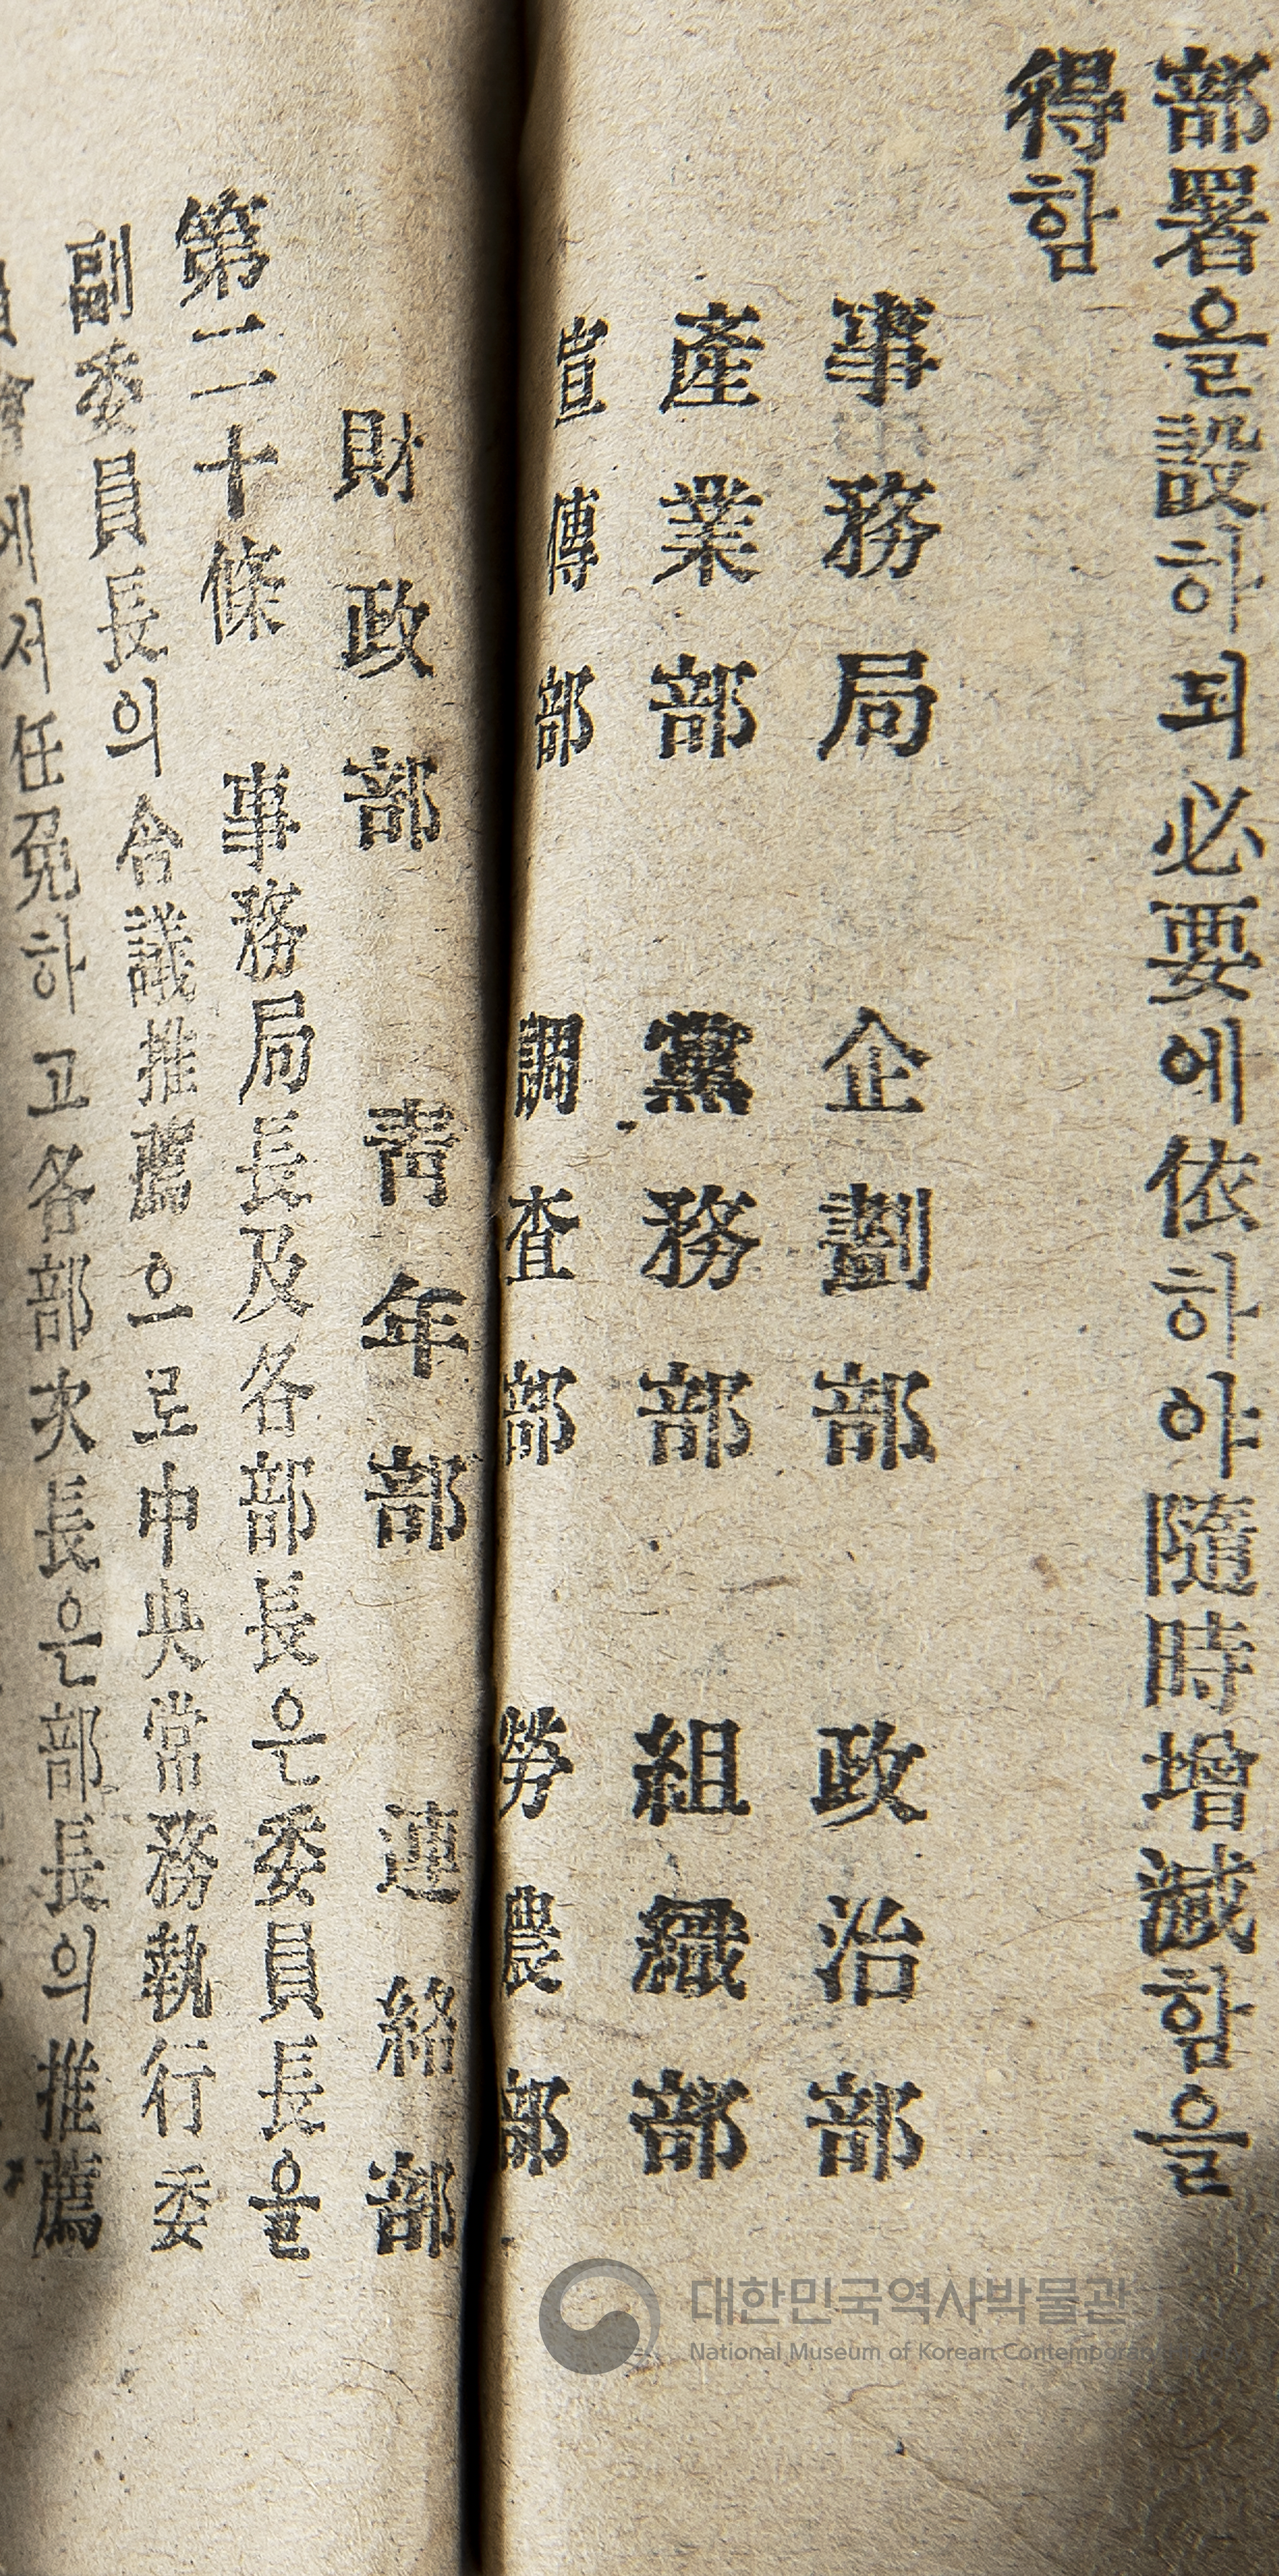 部署을設하되必要에依하야隨時增減함을
得함
事務局 企劃部 政治部
產業部 黨務部 組織部
宣傳部 調査部 勞農部
財政部 靑年部 連絡部
第二十條 事務局長及各部長은委員長을
副委員長의合議推薦으로中央常務執行委
에서任免하고各部次長은部長의推薦
대한민국역사박물관
National Museum of Korean